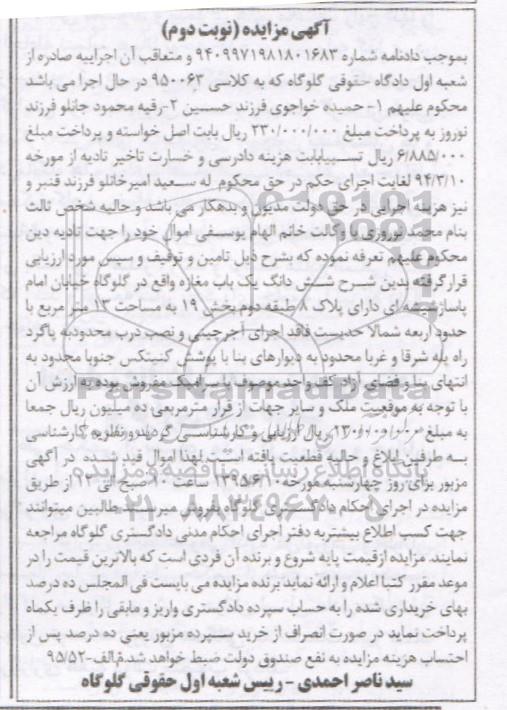 آگهی مزایده (نوبت دوم)
بموجب دادنامه شماره ۹۴۰۹۹۷۱۹۸۱۸۰۱۶۸۳ و متعاقب آن اجراییه صادره از
شعبه اول دادگاه حقوقی گلوگاه که به کلاسی ۹۵۰۰۶۳ در حال اجرا می باشد
محکوم علیهم ۱- حمیده خواجوی فرزند حسین ۲-رقیه محمود جانلو فرزند
نوروز به پرداخت مبلغ ۲۳۰/۰۰۰/۰۰۰ ریال بابت اصل خواسته و پرداخت مبلغ
۶/۸۸۵/۰۰۰ ریال بابت هزینه دادرسی و خسارت تاخیر تادیه از مورخه
۹۴/۳/۱۰ لغایت اجرای حکم در حق محکوم له سعید امیرخانلو فرزند قنبر و
نیز هزینه اجرایی در حق دولت مدیون و بدهکار می باشد و حالیه شخص ثالث
بنام محمد نوروزی با وکالت خانم الهام یوسفی اموال خود را جهت تادیه دین
محکوم علیهم تعرفه نموده که بشرح ذیل تامین و توقیف و سپس مورد ارزیابی
قرارگرفته بدین شرح شش دانگ یک باب مغازه واقع در گلوگاه خیابان امام
پاساژ ای دارای پلاک ۸ طبقه دوم بخش ۱۹ به مساحت ۱۳ متر مربع با
حدود اربعه شمالا حدیست فاقد اجرای آجرچینی و نصب درب محدود به پاگرد
راه پله شرقا و غربا محدود به دیوارهای بنا با پوشش کنیتکس جنوبا محدود به
انتهای بنا و فضای آزاد کف واحد موصوف با سرامیک مفروش بوده به ارزش آن
با توجه به موقعیت ملک و سایر جهات از قرار مترمربعی ده میلیون ریال جمعا
به مبلغ ریال ارزیابی و کارشناسی گردید و نظریه کارشناسی
به طرفین ابلاغ و حالیه قطعیت یافته است لهذا اموال قید شده در آگهی
مزبور برای روز چهارشنبه مورخه ۱۳۹۵/۶/۱۰ ساعت ۱۰ صبح الی ۱۳ از طریق
مزایده در اجرای احکام دادگستری گلوگاه بفروش میرسد طالبین میتوانند
جهت کسب اطلاع بیشتر به دفتر اجرای احکام مدنی دادگستری گلوگاه مراجعه
نمایند. مزایده از قیمت پایه شروع و برنده آن فردی است که بالاترین قیمت را در
موعد مقرر کتبا اعلام و ارائه نماید برنده مزایده می بایست فی المجلس ده درصد
بهای خریداری شده را به حساب سپرده دادگستری واریز و مابقی را ظرف یکماه
پرداخت نماید در صورت انصراف از خرید سپرده مزبور یعنی ده درصد پس از
احتساب هزینه مزایده به نفع صندوق دولت ضبط خواهد شد.م/الف-۹۵/۵۲
سید ناصر احمدی - رییس شعبه اول حقوقی گلوگاه
ParsNamadData
پایگاه اطلاع رسانی مناقصه و مزایده
۰۲۱-۸۸۳۴۹۶۷۰-۵